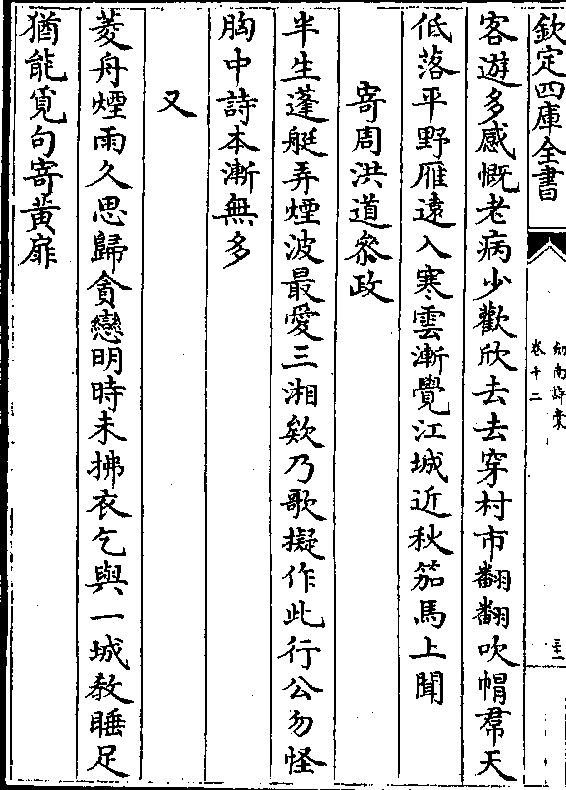 欽定四庫全書
劍南詩稾
卷十二
客遊多感慨老病少歡欣去去穿村市翻翻吹帽帬天
低落平野雁遠入寒雲漸覺江城近秋笳馬上聞
寄周洪道叅政
半生蓬艇弄煙波最愛三湘欸乃歌擬作此行公勿怪
胸中詩本漸無多
又
菱舟煙雨久思歸貪戀明時未拂衣乞與一城教睡足
猶能覓句寄黃扉